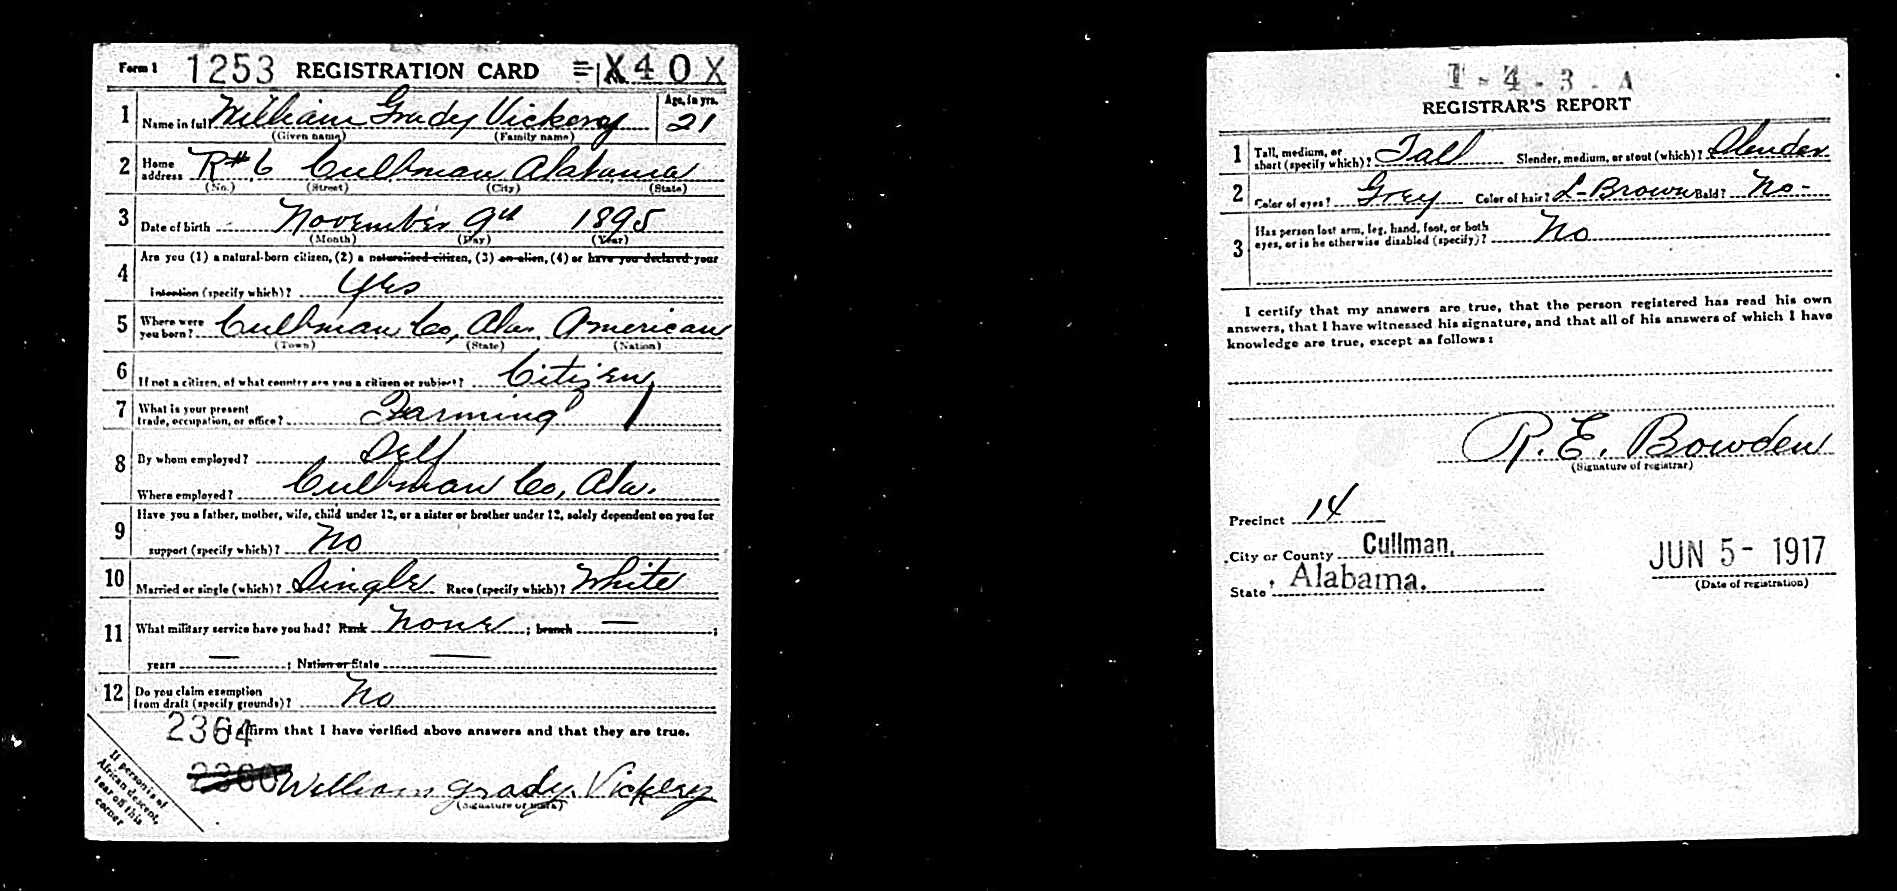 Form 1 1253 REGISTRATION CARD 40 X
1 Name in full William Grady Vickery Age, in yrs. 21
(Given name) (Family name)
2 Home address R#6 Cullman Alabama
(No.) (Street) (City) (State)
3 Date of birth November 9th 1895
(Month) (Day) (Year)
4 Are you (1) a natural-born citizen, (2) a naturalized citizen, (3) an alien, (4) or have you declared your
intention (specify which)? Yes
5 Where were you born? Cullman Co, Ala. American
(Town) (State) (Nation)
6 If not a citizen, of what country are you a citizen or subject? Citizen
7 What is your present trade, occupation, or office? Farming
8 By whom employed? Self
Where employed? Cullman Co, Ala.
9 Have you a father, mother, wife, child under 12, or a sister or brother under 12, solely dependent on you for
support (specify which)? No
10 Married or single (which)? Single Race (specify which)? White
11 What military service have you had? Rank None ; branch — ;
years — ; Nation or State —
12 Do you claim exemption from draft (specify grounds)? No
2364 I affirm that I have verified above answers and that they are true.
William Grady Vickery
(Signature or mark)
If person is of
African descent,
tear off this
corner
1-4-3-A
REGISTRAR'S REPORT
1 Tall, medium, or short (specify which)? Tall Slender, medium, or stout (which)? Slender
2 Color of eyes? Grey Color of hair? L-Brown Bald? No-
3 Has person lost arm, leg, hand, foot, or both
eyes, or is he otherwise disabled (specify)? No
I certify that my answers are true, that the person registered has read his own
answers, that I have witnessed his signature, and that all of his answers of which I have
knowledge are true, except as follows:
R. E. Bowden
(Signature of registrar)
Precinct 14
City or County Cullman,
State Alabama.
JUN 5- 1917
(Date of registration)